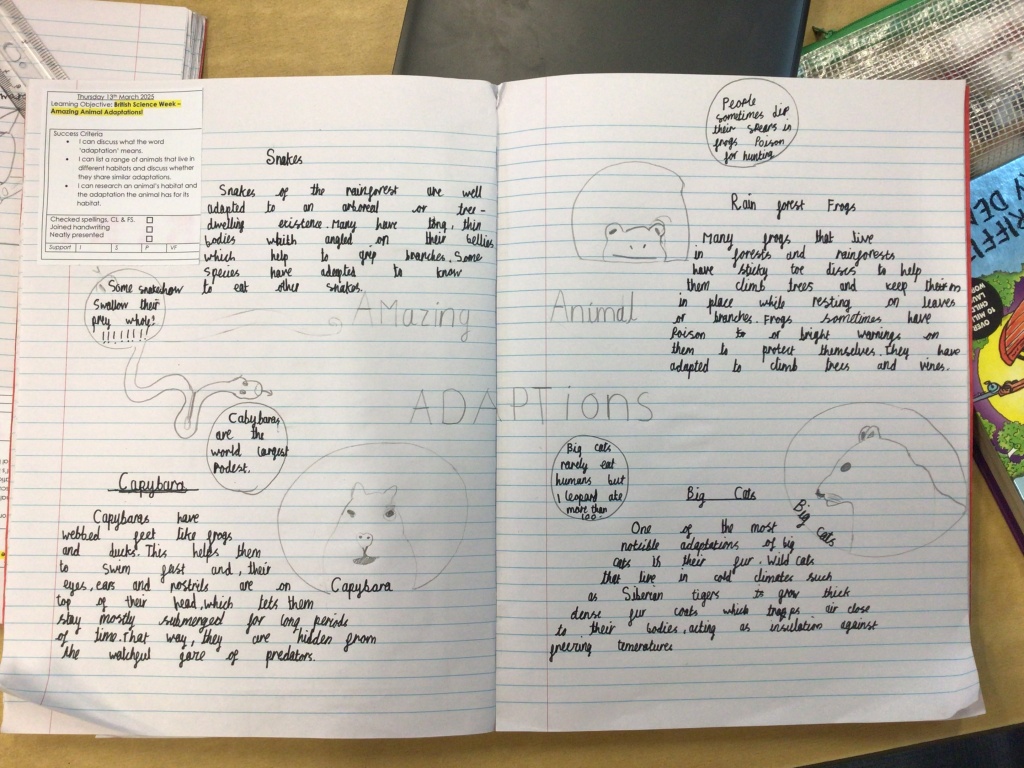 Thursday 13th March 2025
Learning Objective: British Science Week –
Amazing Animal Adaptations!
Success Criteria
I can discuss what the word
'adaptation' means.
I can list a range of animals that live in
different habitats and discuss whether
they share similar adaptations.
I can research an animal's habitat and
the adaptation the animal has for its
habitat.
Checked spellings, CL & FS.
Joined handwriting
Neatly presented
Support I S P VF
Snakes
Snakes of the rainforest are well
adapted to an arboreal or tree-
dwelling existence. Many have long, thin
bodies angled on their bellies
which help to grip branches. Some
species have adapted to know
to eat other snakes.
Some
Swallow their
prey wholy!
!!!!!!!!
AMazing
Animal
ADAPTions
Cabybaras
are the
world largest
Rodest.
Capybara
Capybaras have
webbed feet like frogs
and ducks. This helps them
to swim fast and, their
eyes, ears and nostrils are on
top of their head, which lets them
stay mostly submerged for long periods
of time. That way, they are hidden from
the watchful gaze of predators.
Capybara
People
sometimes dip
their spears in
frogs Poison
for hunting
Rain forest Frogs
Many frogs that live
in forests and rainforests
have sticky toe discs to help
them climb trees and keep
in place while resting on leaves
or branches. Frogs sometimes have
Poison to or bright warnings on
them to protect themselves. They have
adapted to climb trees and vines.
Big cats
rarely eat
humans but
1 leopard ate
more than
100.
Big Cats
Big Cats
One of the most
noticible adaptations of big
cats is their fur. Wild cats
that live in cold climates such
as Siberian tigers to grow thick
dense fur coats which trapps air close
to their bodies, acting as insulation against
OVER